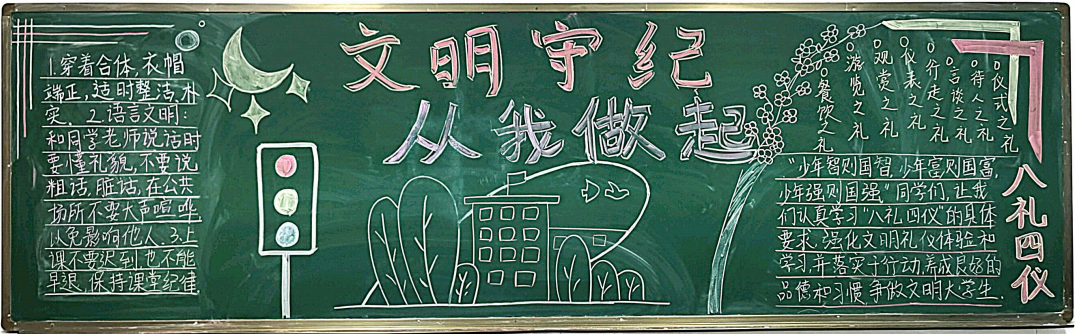 文明守纪
从我做起
1.穿着合体,衣帽
端正,适时整洁,朴
实. 2.语言文明:
和同学老师说话时
要懂礼貌,不要说
粗话,脏话,在公共
场所不要大声喧哗,
以免影响他人.3.上
课不要迟到也不能
早退,保持课堂纪律
仪式之礼
待人之礼
言谈之礼
行走之礼
仪表之礼
观赏之礼
游览之礼
餐饮之礼
八礼四仪
“少年智则国智,少年富则国富,
少年强则国强.”同学们,让我
们认真学习“八礼四仪”的具体
要求,强化文明礼仪体验和
学习,并落实于行动,养成良好的
品德和习惯,争做文明大学生.